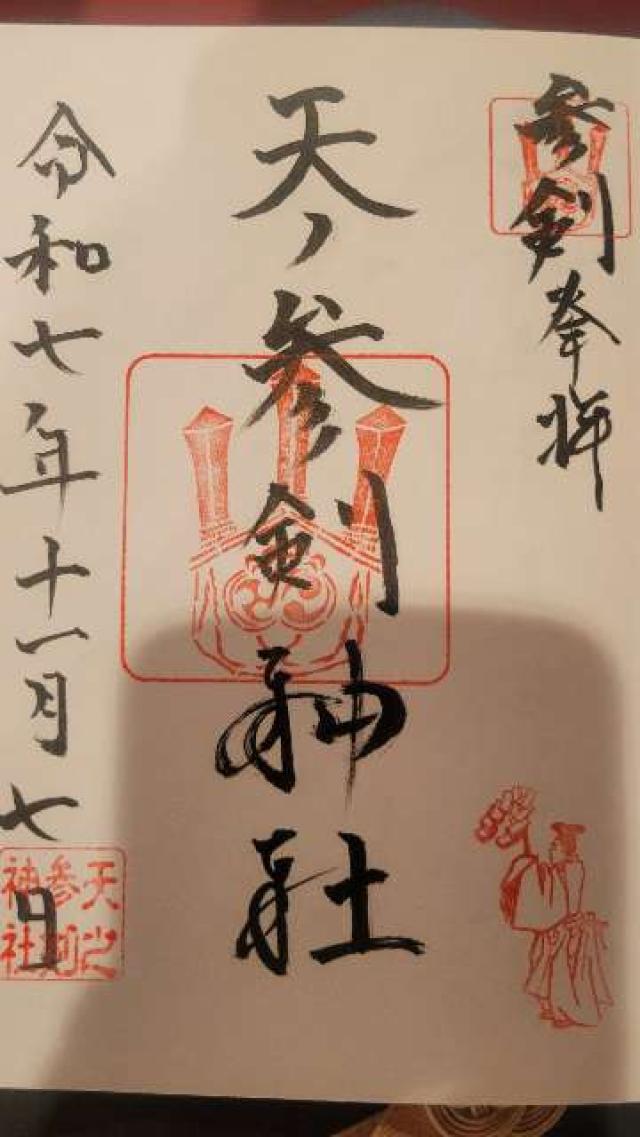 参剣奉拝
天ノ参剣神社
令和七年十一月七日
天之
参剣
神社